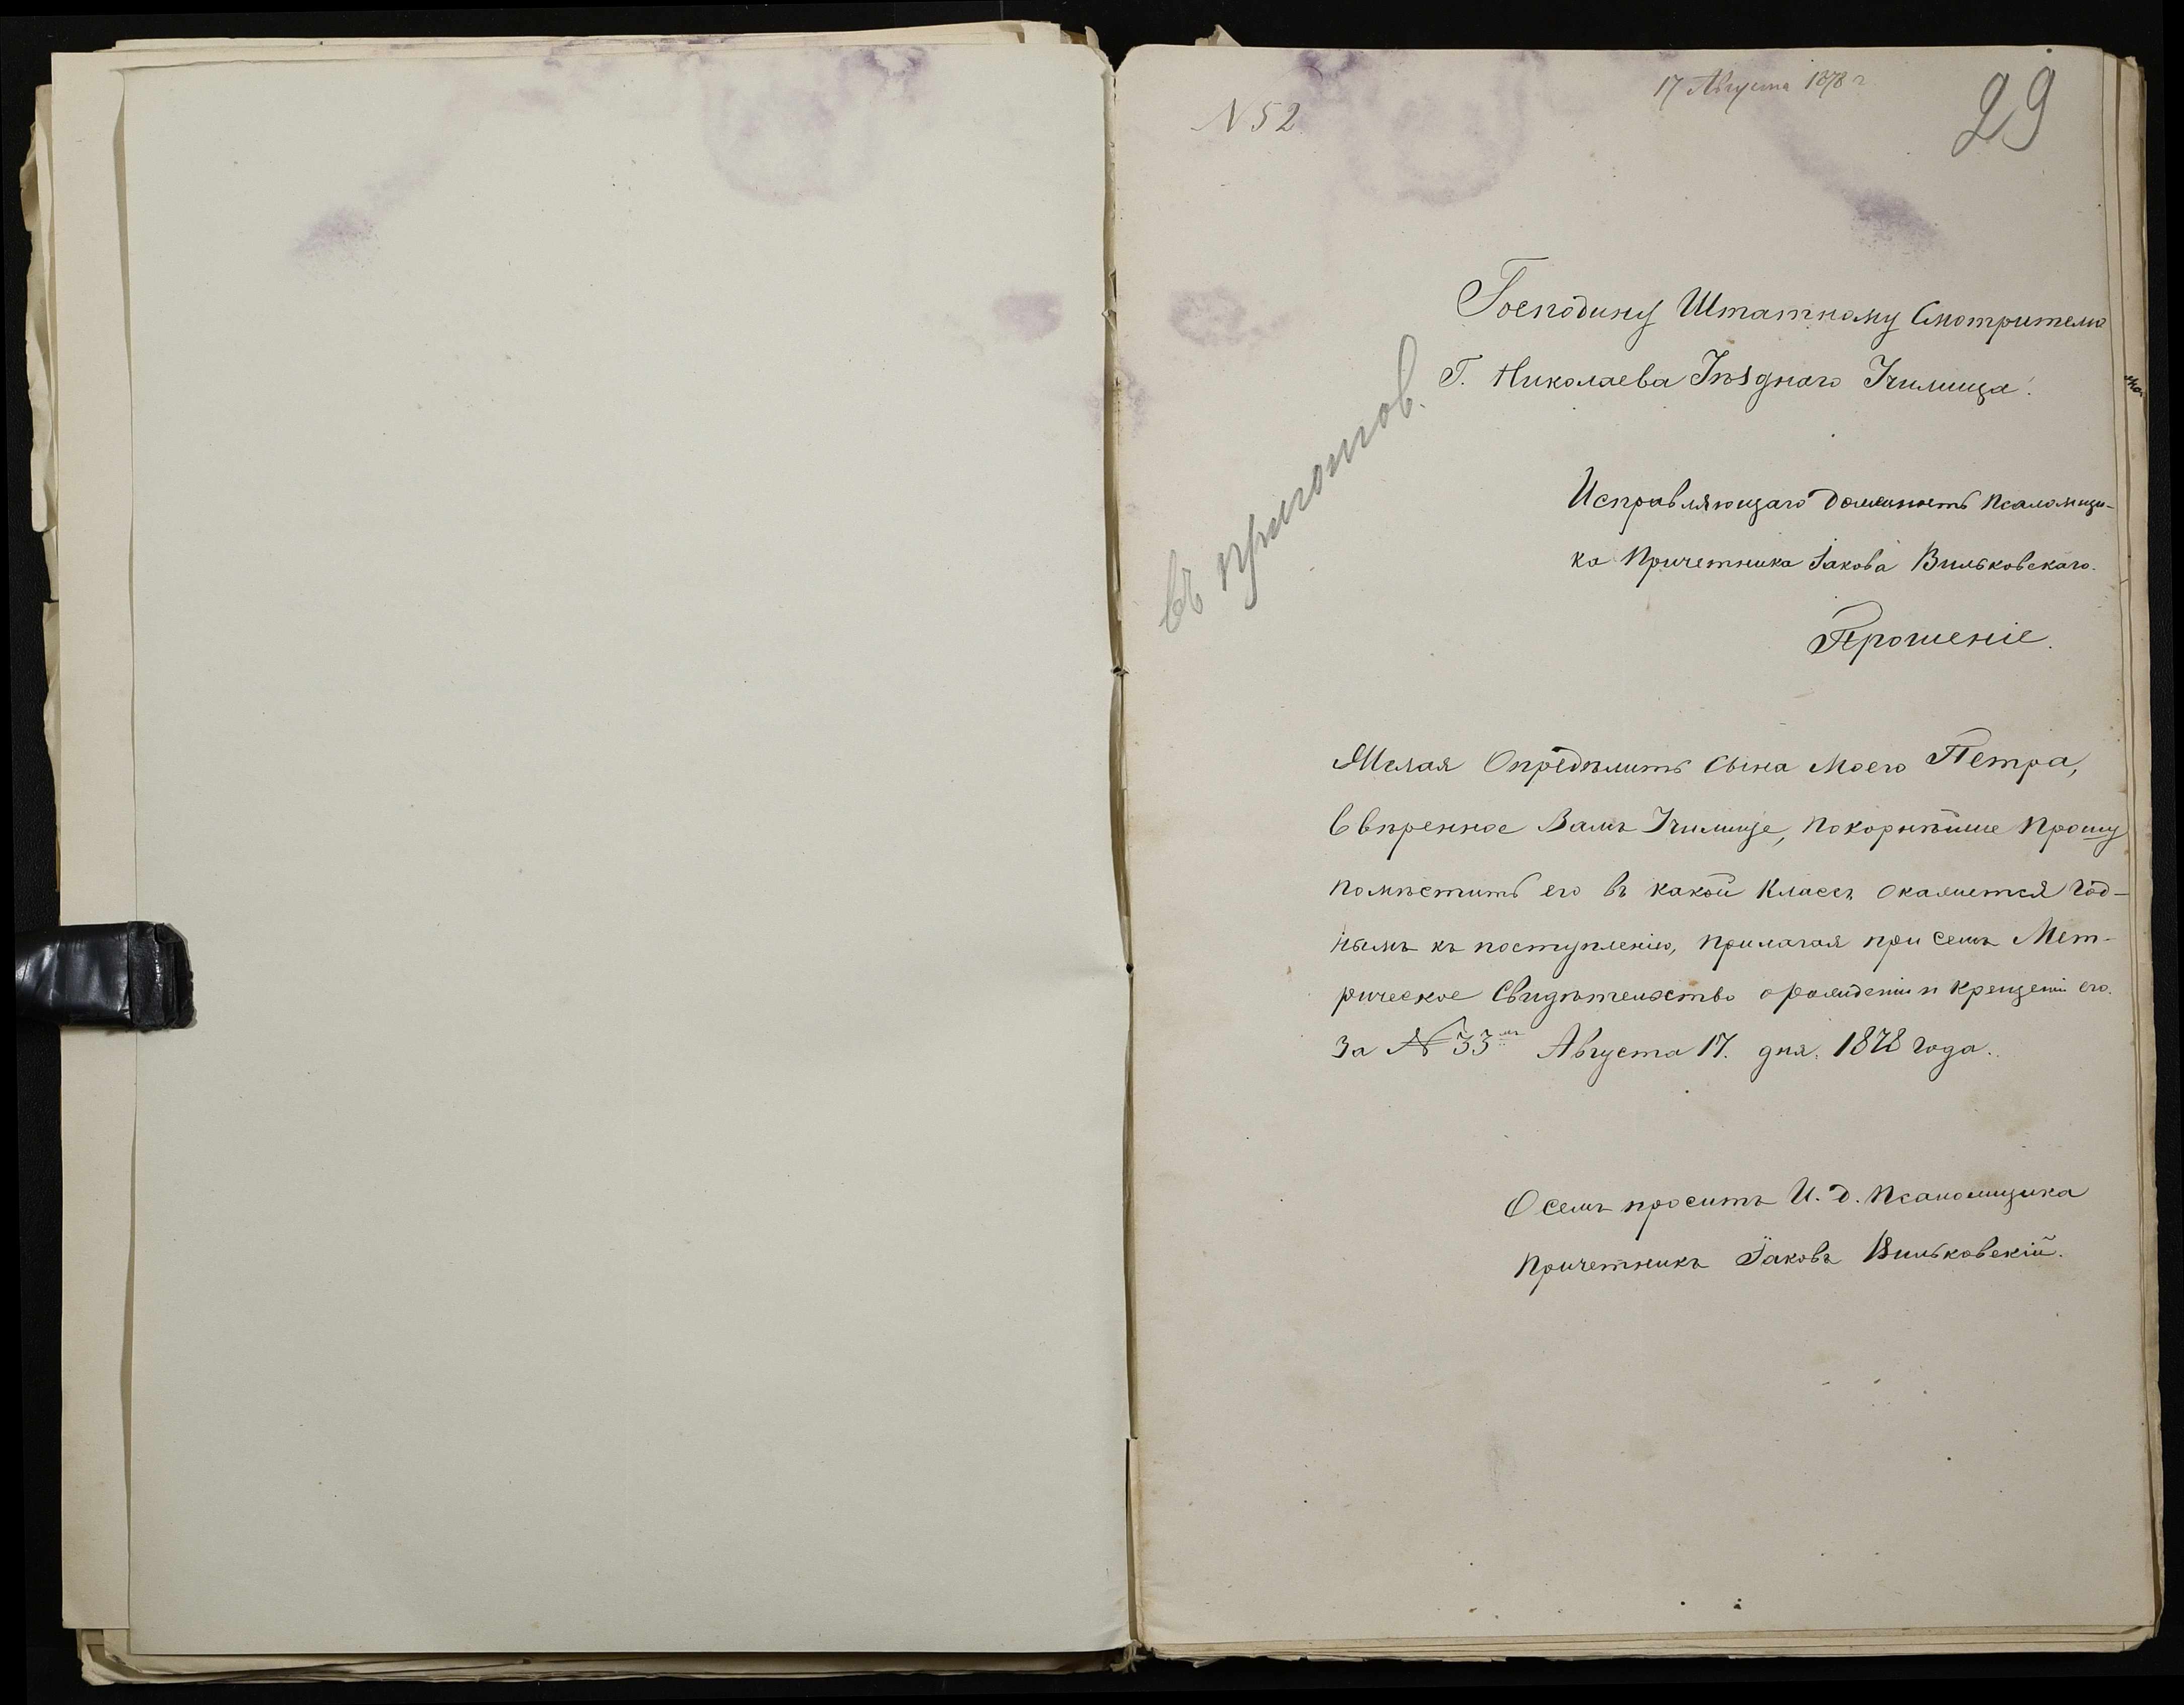 17 Августа 1878 г
29
N 52
Господину Штатному Смотрителю
Г. Николаева Уѣзднаго Училища.
въ приготов.
Исправляющаго Должность Псаломщи-
ка Причетника Іакова Вильковскаго.
Прошеніе.
Желая Опредѣлить Сына Моего Петра,
Ввѣренное Вамъ Училище, покорнѣйше Прошу
помѣстить его въ какой Классъ окажется Год-
нымъ къ поступленію, прилагая при семъ Мет-
рическое Свидѣтельство о рожденіи и крещеніи его.
За № 33мъ Августа 17. дня. 1878 Года.
О семъ проситъ И. Д. Псаломщика
Причетникъ Іаковъ Вильковскій.